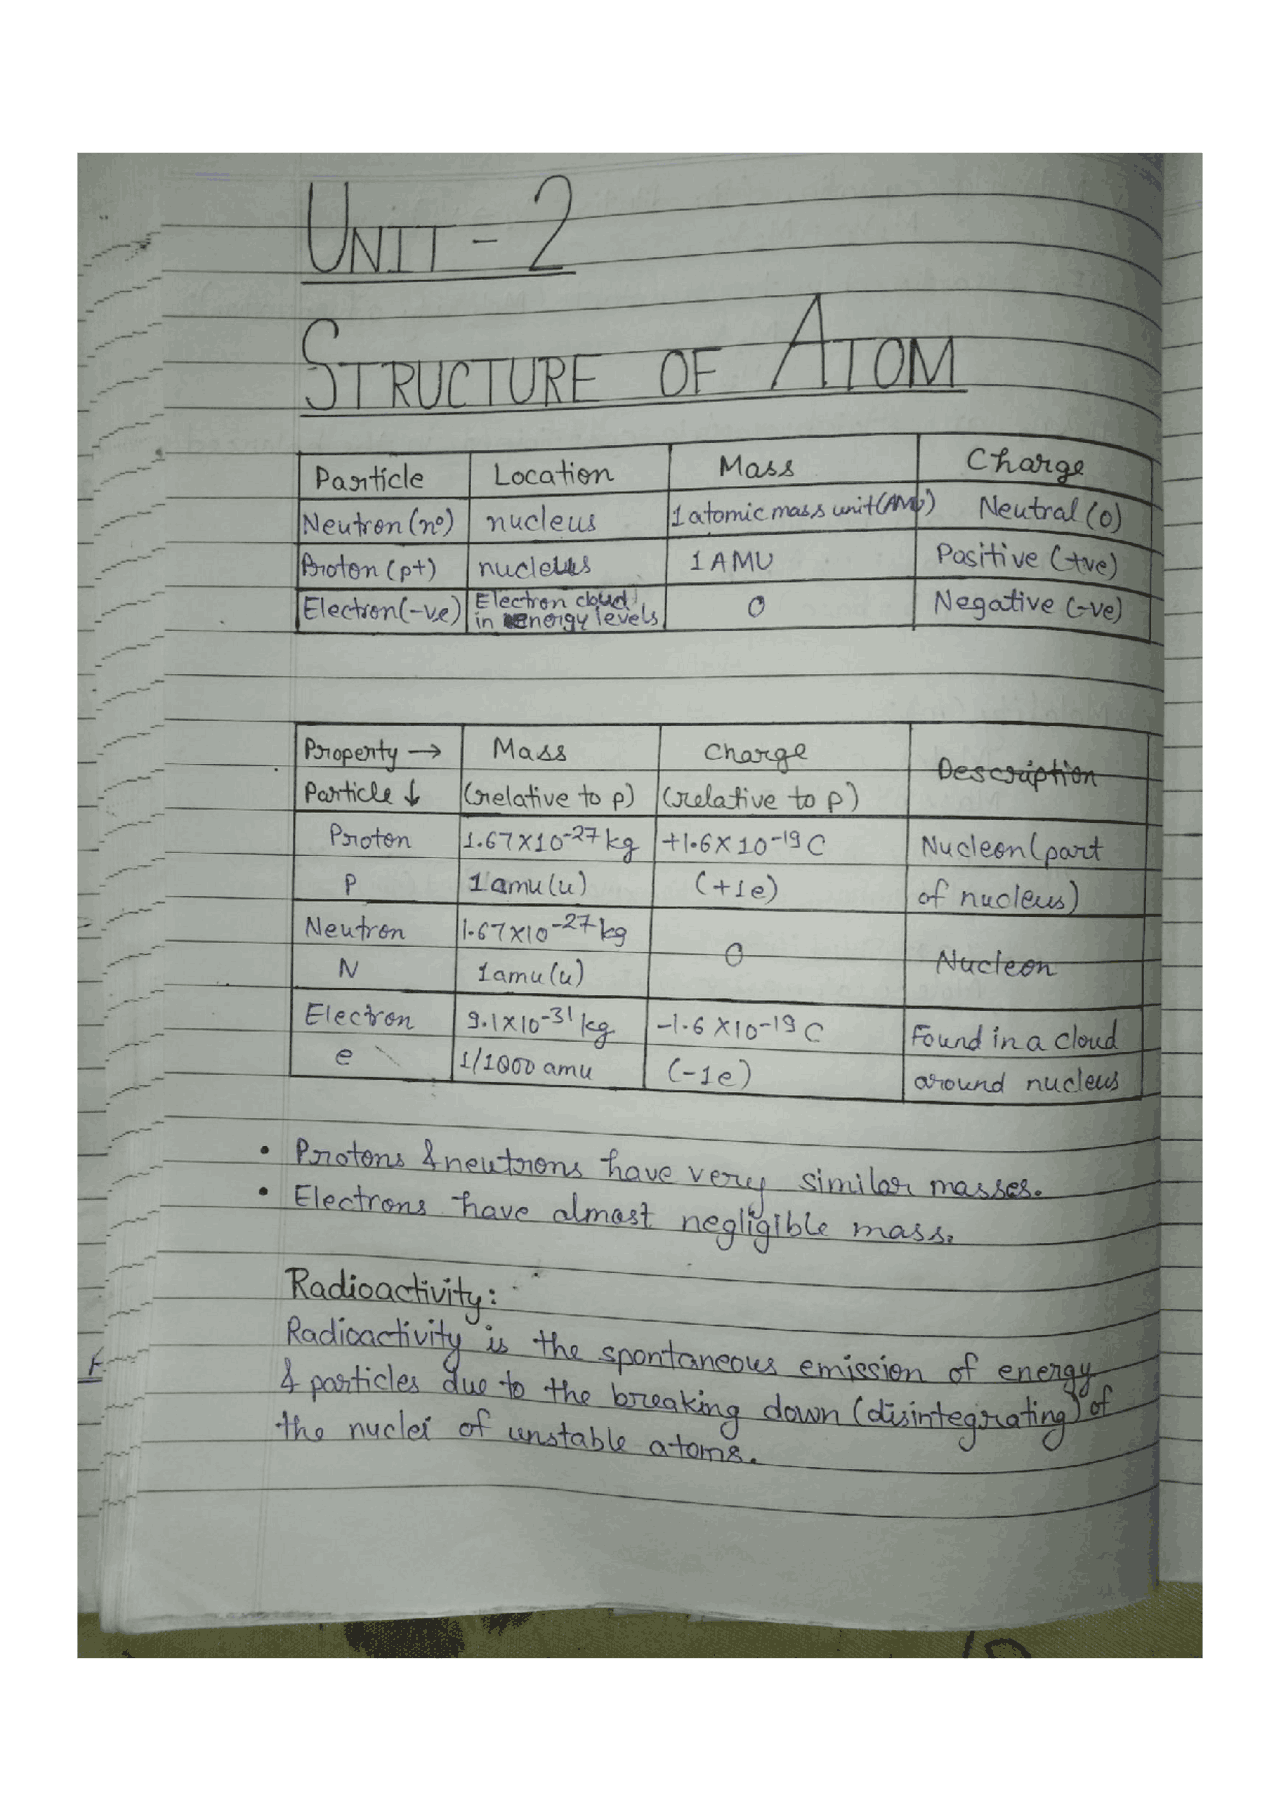 UNIT-2
STRUCTURE OF ATOM
Particle Location Mass Charge
Neutron (n⁰) nucleus 1 atomic mass unit (AMU) Neutral (0)
Proton (p+) nucleus 1 AMU Positive (+ve)
Electron (-ve) Electron cloud 0 Negative (-ve)
in energy levels
Property → Mass Charge Description
Particle ↓ (relative to p) (relative to p)
Proton 1.67×10⁻²⁷ kg +1.6×10⁻¹⁹ C Nucleon (part
P 1 amu (u) (+1e) of nucleus)
Neutron 1.67×10⁻²⁷ kg 0 Nucleon
N 1 amu (u)
Electron 9.1×10⁻³¹ kg -1.6×10⁻¹⁹ C Found in a cloud
e 1/1000 amu (-1e) around nucleus
• Protons & neutrons have very similar masses.
• Electrons have almost negligible mass.
Radioactivity:
Radioactivity is the spontaneous emission of energy
& particles due to the breaking down (disintegrating) of
the nuclei of unstable atoms.